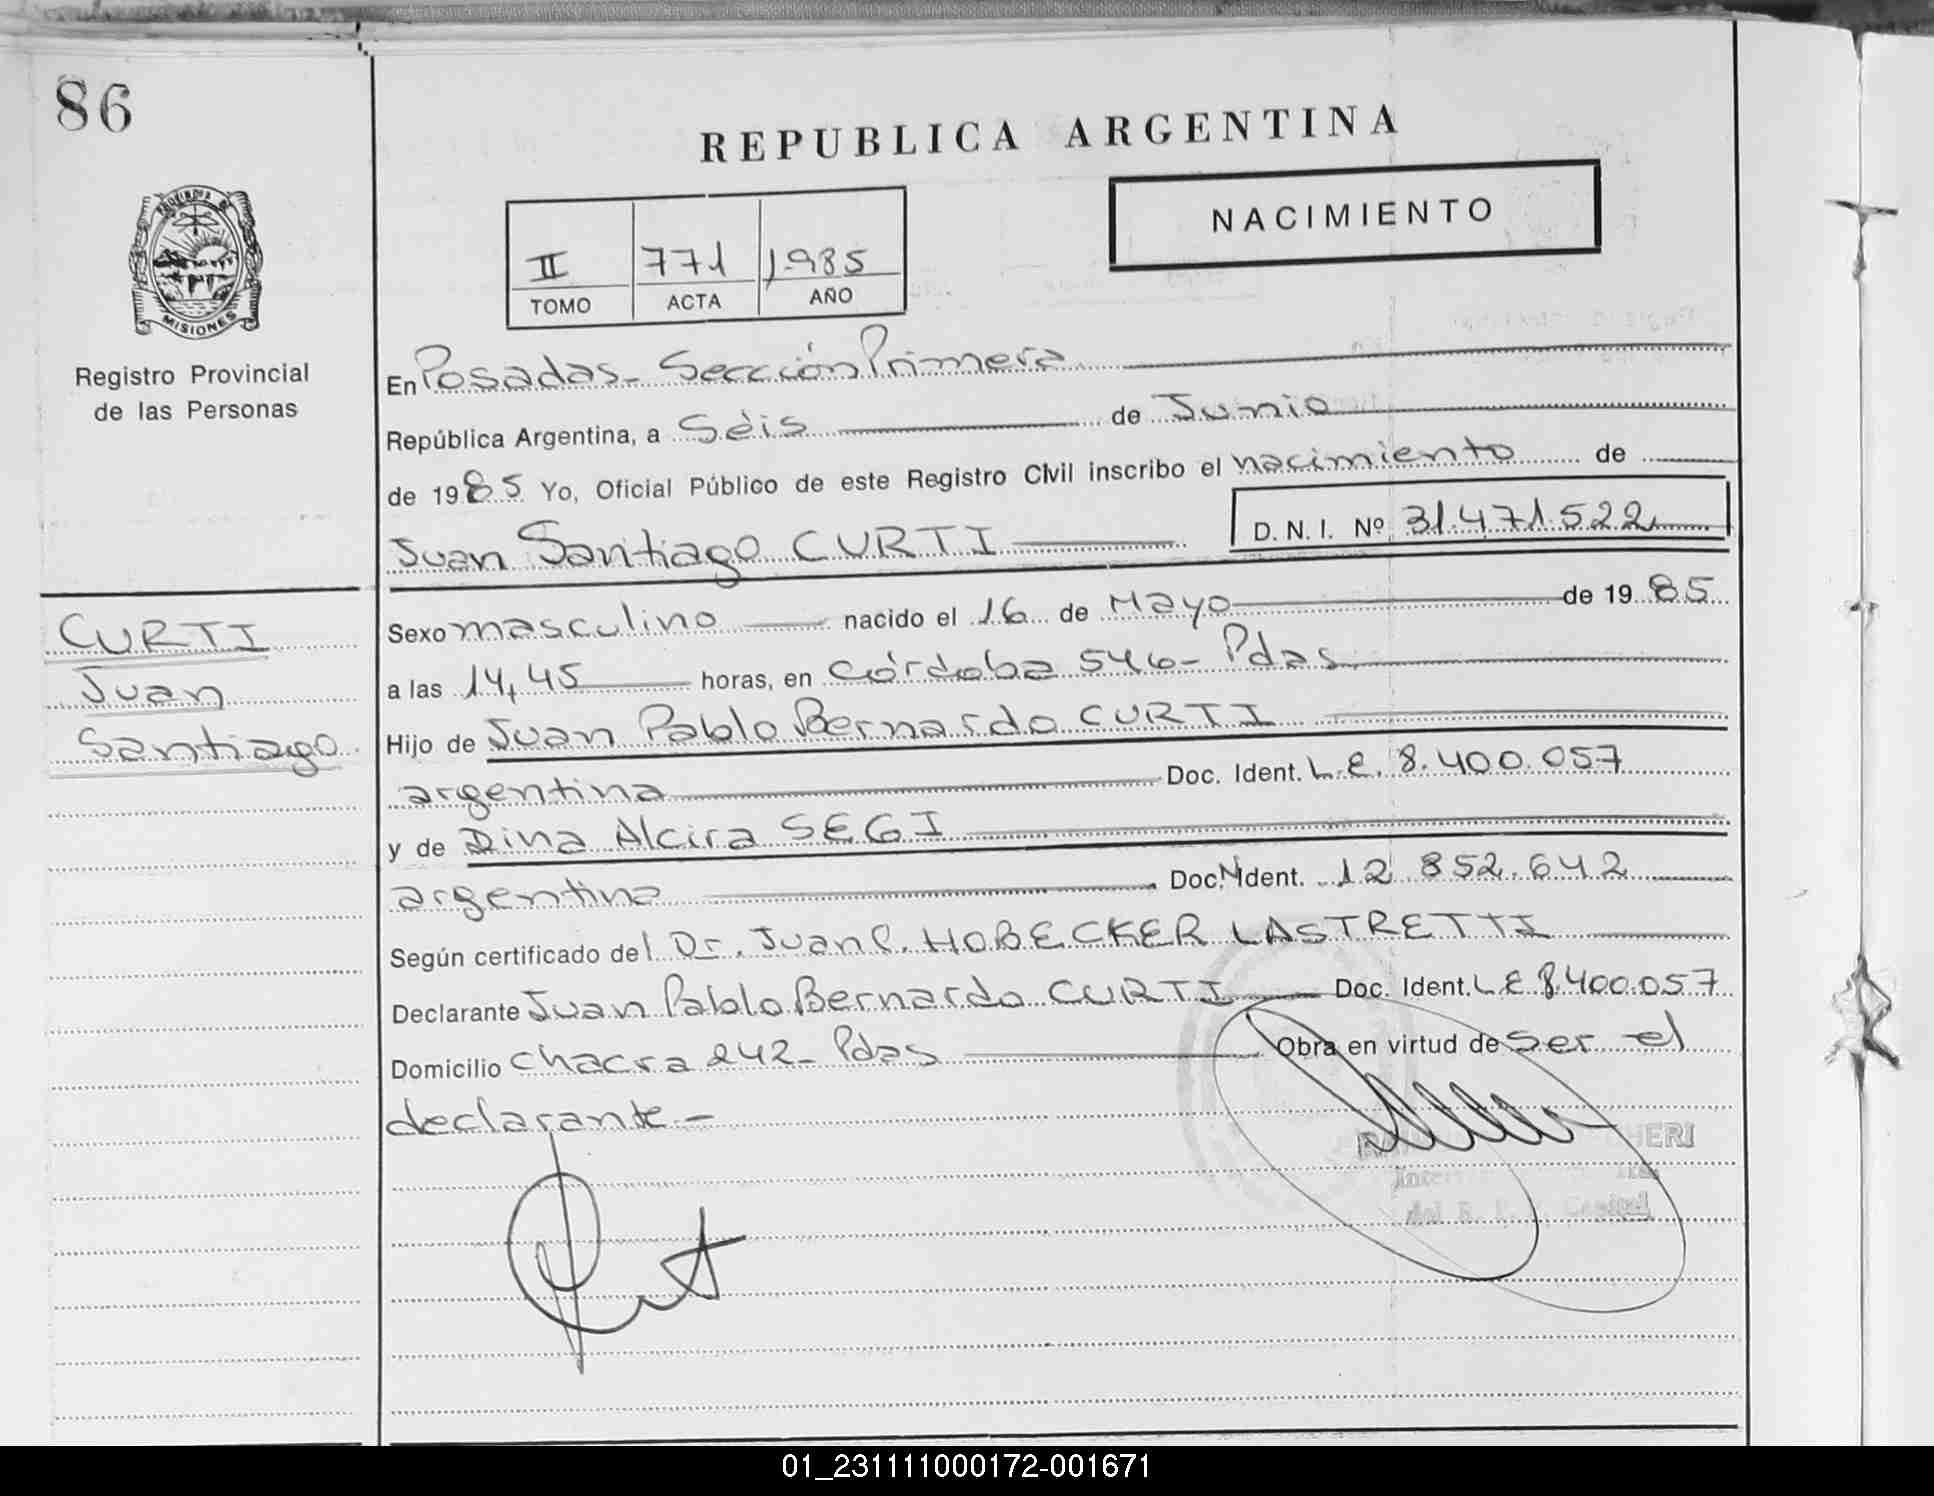 86
REPUBLICA ARGENTINA
NACIMIENTO
II 771 1985
TOMO ACTA AÑO
PROVINCIA DE
MISIONES
Registro Provincial
de las Personas
En Posadas - Sección Primera
República Argentina, a Séis de Junio
de 1985 Yo, Oficial Público de este Registro Civil inscribo el nacimiento de
Juan Santiago CURTI D. N. I. Nº 31.471.522
CURTI
Juan
Santiago
Sexo masculino nacido el 16 de Mayo de 1985
a las 14,45 horas, en Córdoba 546 - Pdas
Hijo de Juan Pablo Bernardo CURTI
argentina Doc. Ident. L.E. 8.400.057
y de Dina Alcira SEGI
argentina Doc. N Ident. 12.852.642
Según certificado del Dr. Juan C. HOBECKER LASTRETTI
Declarante Juan Pablo Bernardo CURTI Doc. Ident. L E 8.400.057
Domicilio chacra 242 - Pdas Obra en virtud de ser el
declarante -
01_231111000172-001671